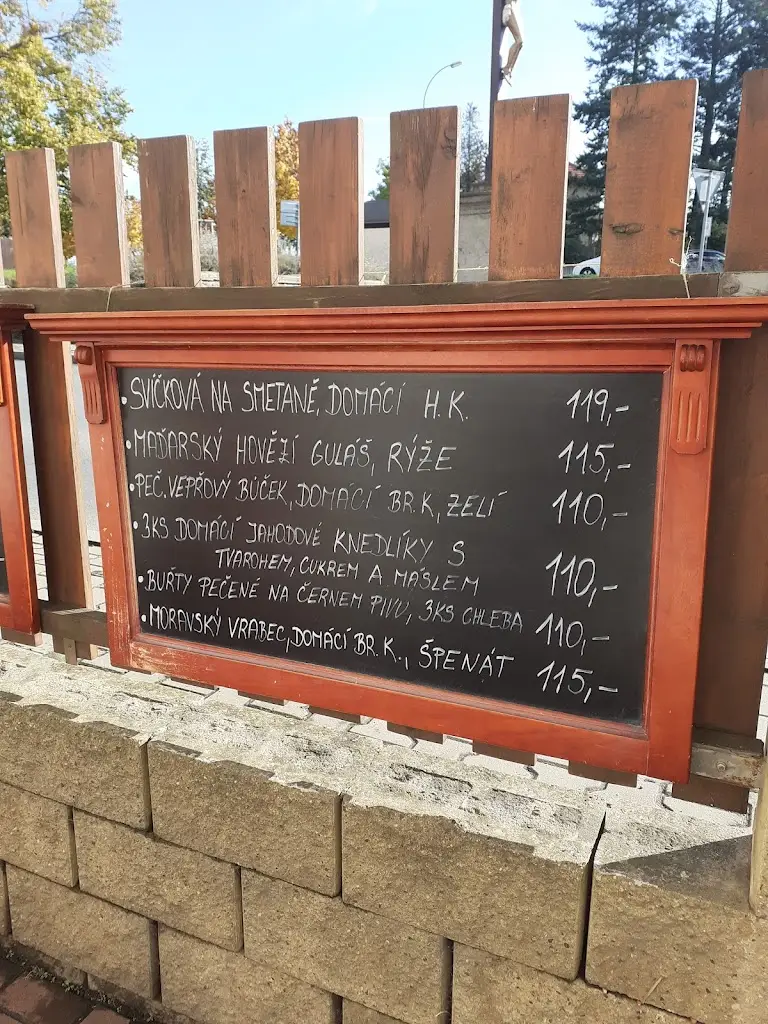 •SVÍČKOVÁ NA SMETANĚ, DOMÁCÍ H.K. 119,-
•MAĎARSKÝ HOVĚZÍ GULÁŠ, RÝŽE 115,-
•PEČ. VEPŘOVÝ BŮČEK, DOMÁCÍ BR.K, ZELÍ 110,-
•3KS DOMÁCÍ JAHODOVÉ KNEDLÍKY S
TVAROHEM, CUKREM A MÁSLEM 110,-
•BUŘTY PEČENÉ NA ČERNEM PIVU, 3KS CHLEBA 110,-
•MORAVSKÝ VRABEC, DOMÁCÍ BR.K., ŠPENÁT 115,-